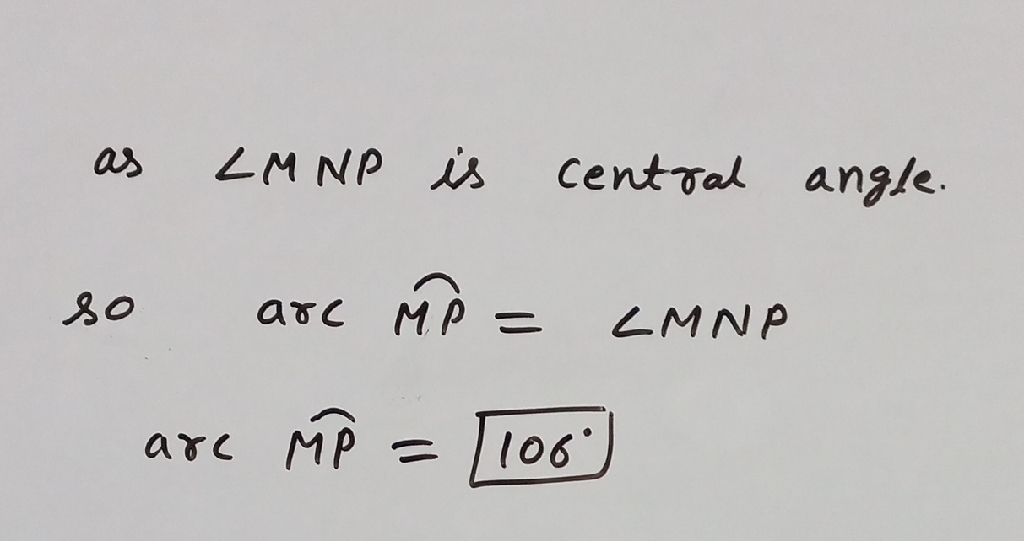 as ∠MNP is central angle.
so arc M͡P = ∠MNP
arc M͡P = 106°